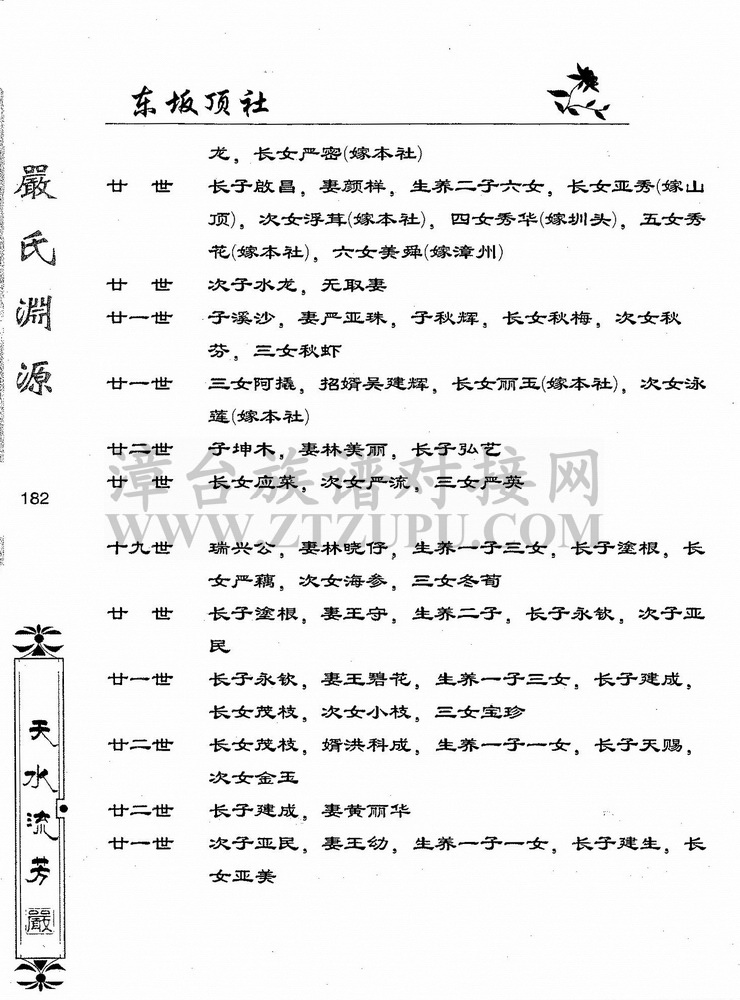 东坂顶社
龙，长女严密(嫁本社)
廿世 长子啟昌，妻颜样，生养二子六女，长女亚秀(嫁山
顶)，次女浮茸(嫁本社)，四女秀华(嫁圳头)，五女秀
花(嫁本社)，六女美舜(嫁漳州)
廿世 次子水龙，无取妻
廿一世 子溪沙，妻严亚珠，子秋辉，长女秋梅，次女秋
芬，三女秋虾
廿一世 三女阿撬，招婿吴建辉，长女丽玉(嫁本社)，次女泳
莲(嫁本社)
廿二世 子坤木，妻林美丽，长子弘艺
廿世 长女应菜，次女严流，三女严英
十九世 瑞兴公，妻林晓仔，生养一子三女，长子塗根，长
女严藕，次女海参，三女冬荀
廿世 长子塗根，妻王守，生养二子，长子永钦，次子亚
民
廿一世 长子永钦，妻王碧花，生养一子三女，长子建成，
长女茂枝，次女小枝，三女宝珍
廿二世 长女茂枝，婿洪科成，生养一子一女，长子天赐，
次女金玉
廿二世 长子建成，妻黄丽华
廿一世 次子亚民，妻王幼，生养一子一女，长子建生，长
女亚美
嚴氏淵源
182
天水流芳
嚴
漳台族谱对接网
WWW.ZTZUPU.COM